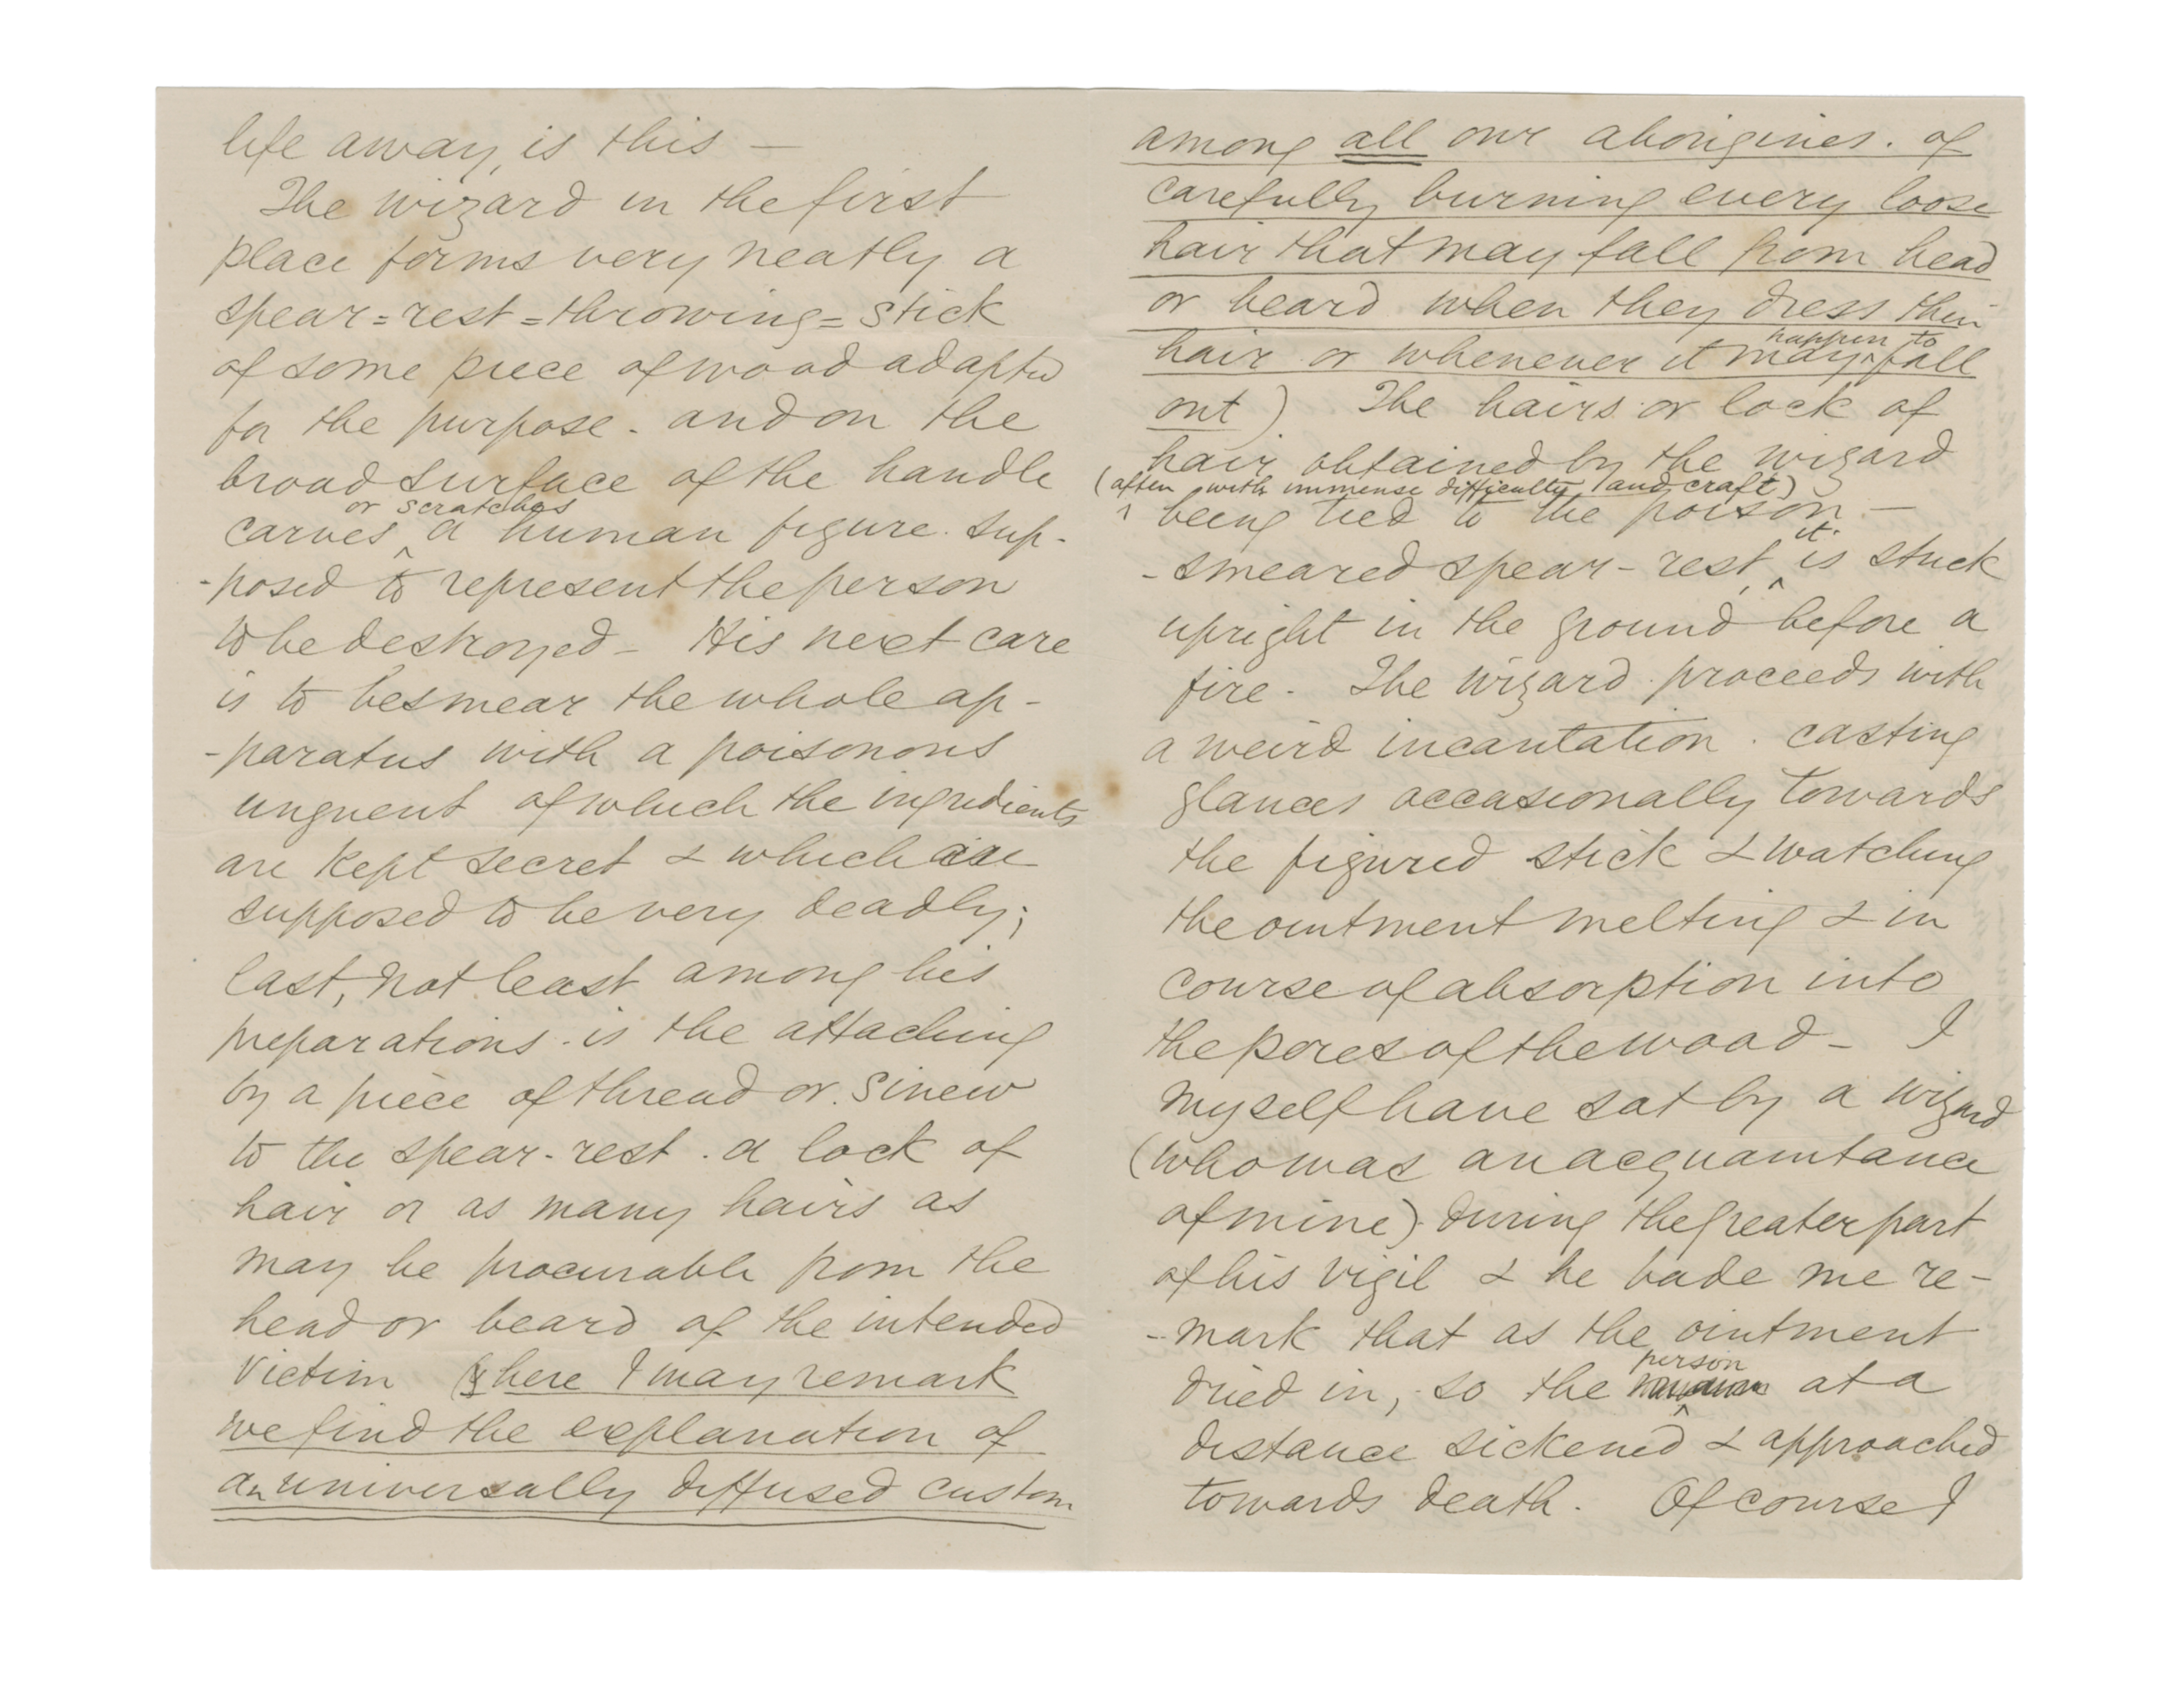 life away, is this —
The wizard in the first
place forms very neatly a
spear=rest=throwing=stick
of some piece of wood adapted
for the purpose. and on the
broad surface of the handle
or scratches
carves a human figure. sup-
-posed to represent the person
to be destroyed — His next care
is to besmear the whole ap-
-paratus with a poisonous
unguent of which the ingredients
are kept secret & which are
supposed to be very deadly;
last, not least among his
preparations. is the attaching
by a piece of thread or sinew
to the spear-rest. a lock of
hair or as many hairs as
may be procurable from the
head or beard of the intended
victim (here I may remark
we find the explanation of
an universally diffused custom
among all our aborigines. of
carefully burning every loose
hair that may fall from head
or beard when they dress their
happen to
hair or whenever it may fall
out) The hairs or lock of
hair obtained by the wizard
(often with immense difficulty and craft)
being tied to the poison —
it
-smeared spear-rest, is stuck
upright in the ground before a
fire. The wizard proceeds with
a weird incantation. casting
glances occasionally towards
the figured stick & watching
the ointment melting & in
course of absorption into
the pores of the wood — I
myself have sat by a wizard
(who was an acquaintance
of mine) during the greater part
of his vigil & he bade me re-
-mark that as the ointment
person
dried in, so the at a
distance sickened & approached
towards death. Of course I